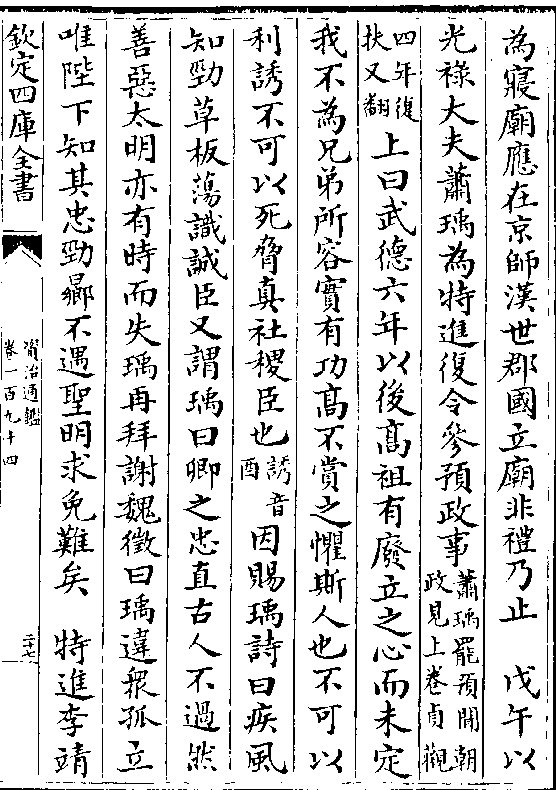 為寢廟應在京師漢世郡國立廟非禮乃止　戊午以
光禄大夫蕭瑀為特進復令參預政事蕭瑀罷預聞朝政見上卷貞觀
四年復扶又翻上曰武德六年以後髙祖有廢立之心而未定
我不為兄弟所容實有功髙不賞之懼斯人也不可以
利誘不可以死脅真社稷臣也誘音酉因賜瑀詩曰疾風
知勁草板蕩識誠臣又謂瑀曰卿之忠直古人不過然
善惡太明亦有時而失瑀再拜謝魏徵曰瑀違衆孤立
唯陛下知其忠勁曏不遇聖明求免難矣　特進李靖
欽定四庫全書
資治通鑑
卷一百九十四